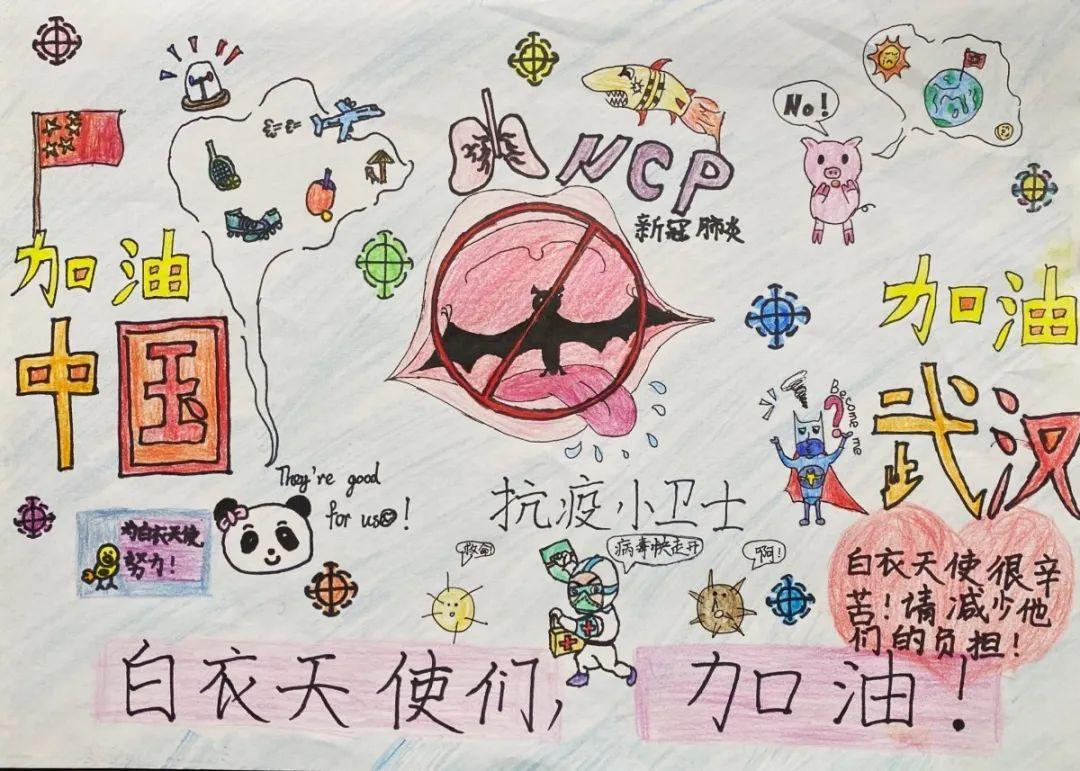 NCP
新冠肺炎
No!
加油
中国
加油
武汉
Become me
?
They're good
for us!
抗疫小卫士
为白衣天使
努力!
救命
病毒快走开
啊!
白衣天使很辛
苦!请减少他
们的负担!
白衣天使们,加油!